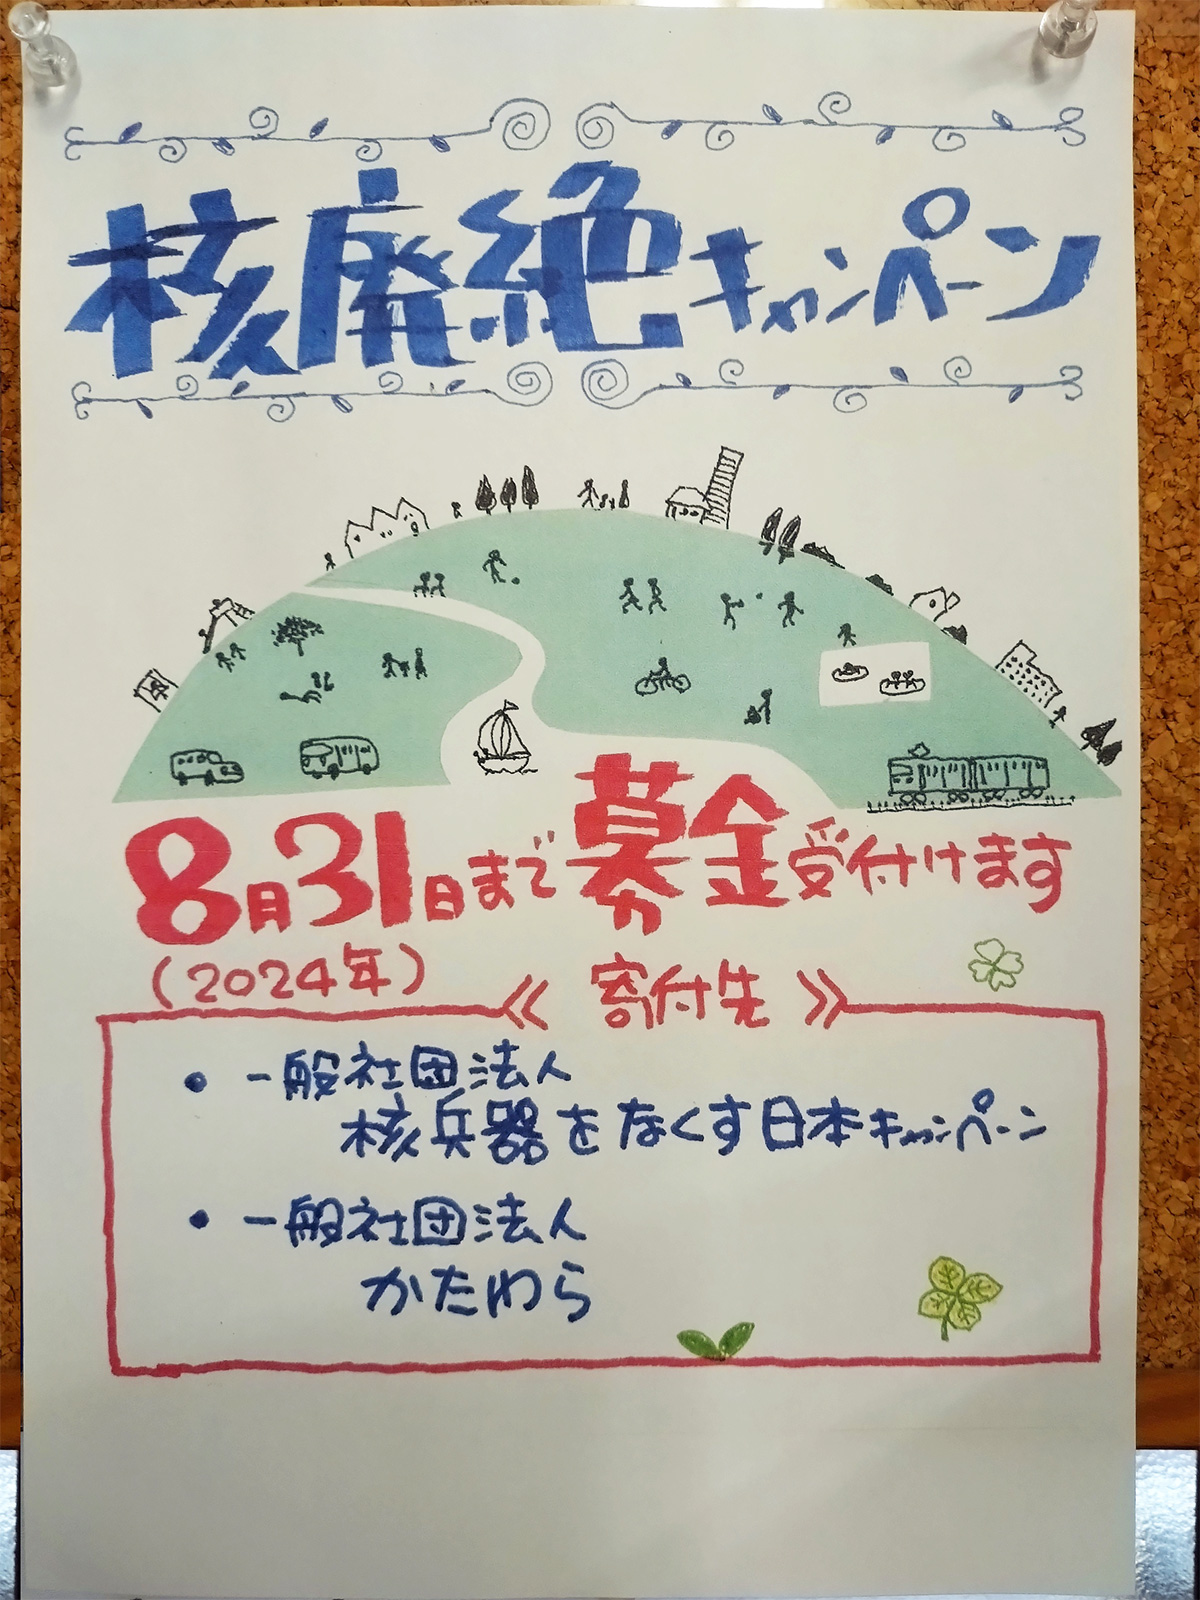 核廃絶キャンペーン
8月31日まで募金受付けます
(2024年)
《 寄付先 》
• 一般社団法人
核兵器をなくす日本キャンペーン
• 一般社団法人
かたわら